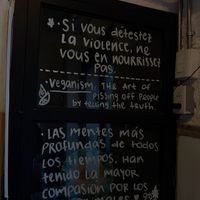 • Si vous détestez
la violence, ne
vous en nourrissez
pas.
• Veganism: the art of
pissing off people
by telling the truth.
• Las mentes más
profundas de todos
los tiempos, han
tenido la mayor
compasión por los
animales